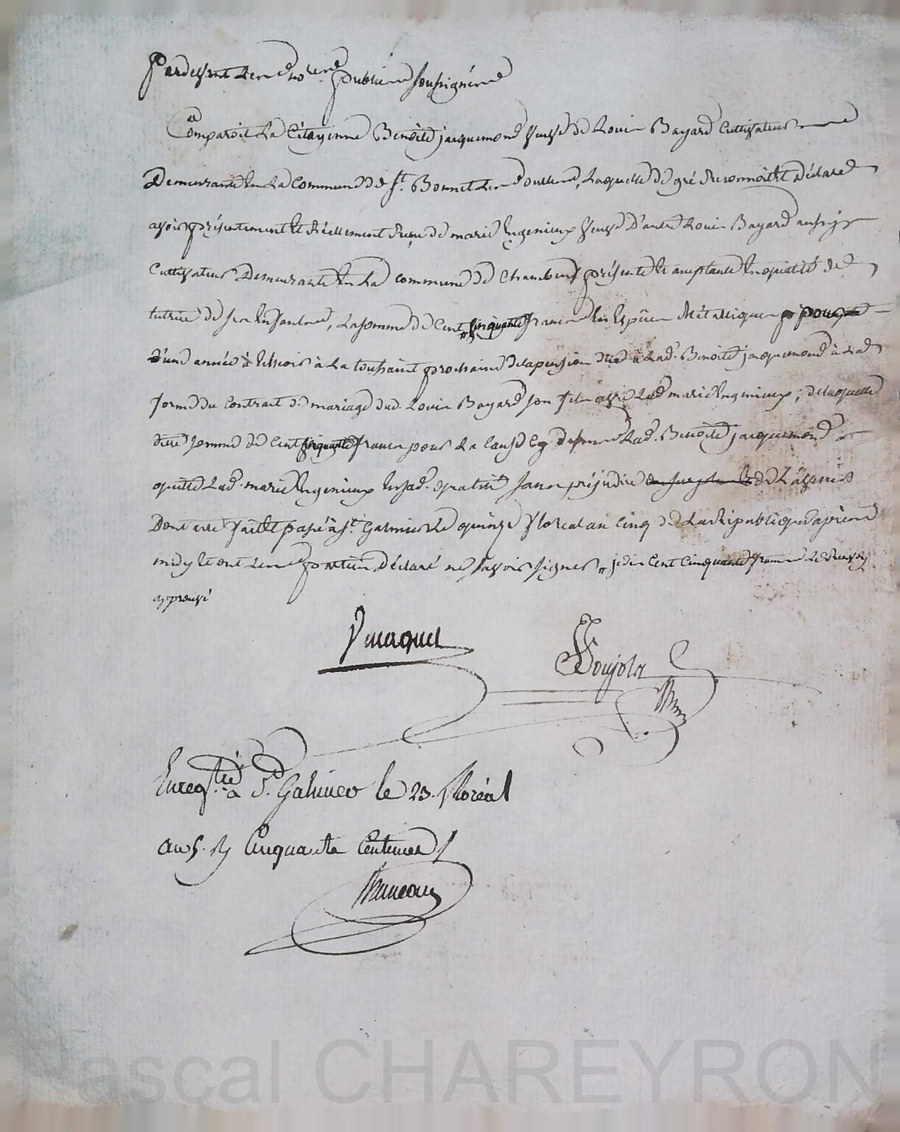 Pardevant Les no.res publics soussignés
Comparoit La Citoyenne Benoite jacquemond veuve de Louis Bayard Cultivateur
Demeurante En La Commune de St. Bonnet Les oulles, Laquelle de gré a reconnu et déclaré
avoir présentement Et Réellement Reçu de marie Ingenieux Veuve D'autre Louis Bayard aussi
Cultivateur Demeurante En La commune de Chambeuf présente Et acceptante En qualité de
tutrice de ses Enfants, La somme de Cent cinquante francs En Espèces Métalliques
D'une année à Echoir à La toussaint prochaine de la pension due à Lad. Benoite jacquemond à La
forme du Contrat de mariage dud. Louis Bayard son fils avec Lad marie Ingenieux, de laquelle
dite somme de Cent cinquante francs pour La Cause Cy dessus Lad. Benoite jacquemond
quitte Lad. marie Ingenieux En sad. qualité sans préjudice de L'avenir
Dont acte fait Et passé à St. Galmier Le quinze floreal an Cinq de La Republique après
midy Et ont Les parties Déclaré ne savoir signer, je dis Cent Cinquante francs
approuvé
Ymaquet
Boujola
Enregtré à St. Galmier le 23. floréal
an 5. R Cinquante Centimes